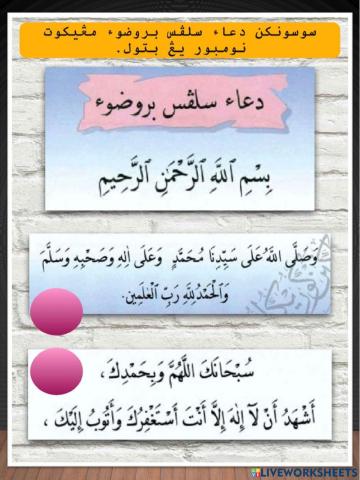 سوسونکن دعاء سلڤس بروضوء مڠيکوت
نومبور يڠ بتول.
دعاء سلڤس بروضوء
بِسْمِ ٱللَّهِ ٱلرَّحْمَٰنِ ٱلرَّحِيمِ
وَصَلَّى اللَّهُ عَلَى سَيِّدِنَا مُحَمَّدٍ وَعَلَى اٰلِهِ وَصَحْبِهِ وَسَلَّمَ
وَالْحَمْدُ لِلَّهِ رَبِّ الْعٰلَمِين.
سُبْحَانَكَ اللَّهُمَّ وَبِحَمْدِكَ ،
أَشْهَدُ أَنْ لَآ إِلٰهَ إِلَّا أَنْتَ أَسْتَغْفِرُكَ وَأَتُوبُ إِلَيْكَ ،
LIVEWORKSHEETS